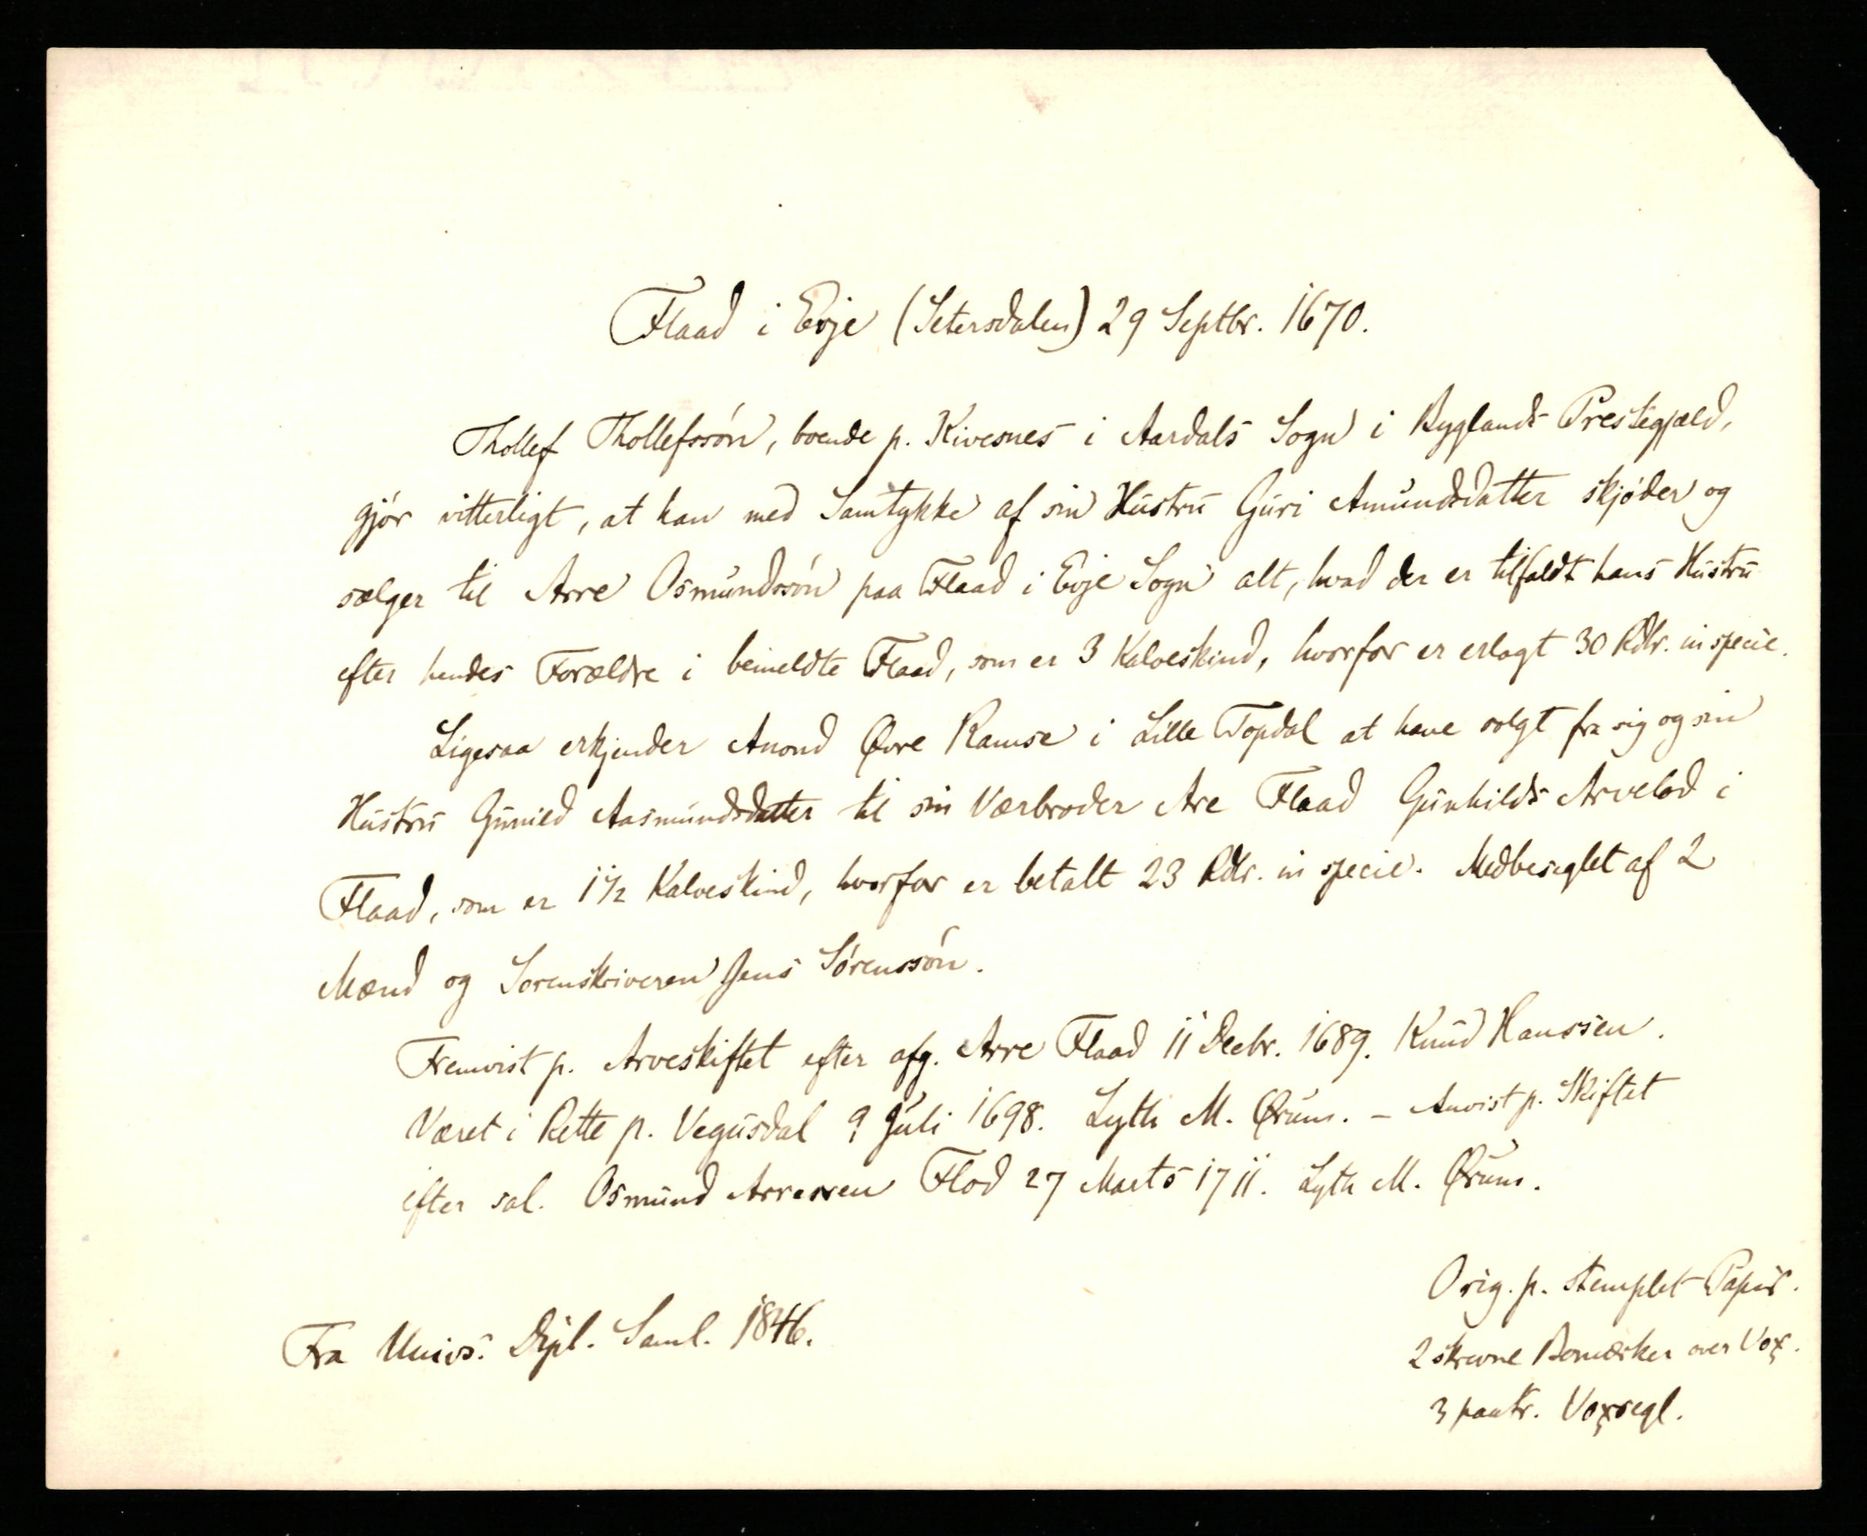 Flaad i Evje (Setersdalen) 29 Septbr. 1670.
Thollef Thollefssön, boende p. Kivesnes i Aardals Sogn i Byglands Prestegjæld,
gjör vitterligt, at han med Samtykke af sin Hustru Guri Amundsdatter skjöder og
sælger til Arre Osmundssön paa Flaad i Evje Sogn alt, hvad der er tilfaldt hans Hustru
efter hendes Forældre i bemeldte Flaad, som er 3 Kalveskind, hvorfor er erlagt 30 Rdlr. in specie.
Ligesaa erkjender Anond Øvre Ramse i Lille Topdal at have solgt fra sig og sin
Hustru Gunild Aasmundsdatter til sin Værbroder Are Flaad Gunhilds Arvelod i
Flaad, som er 1½ Kalveskind, hvorfor er betalt 23 Rdlr. in specie. Medbeseglet af 2
Mænd og Sorenskriveren Jens Sörenssön.
Fremvist p. Arveskiftet efter afg. Arre Flaad 11 Decbr. 1689. Knud Hanssen.
Været i Rette p. Vegusdal 9 Juli 1698. Lyth M. Ørum. – Anvist p. Skiftet
efter sal. Osmund Arressen Flod 27 Marts 1711. Lyth M. Ørum.
Orig. p. stemplet Papir.
Fra Univs. Dipl. Saml. 1846.
2 skrevne Bomærker over Vox.
3 paatr. Voxsegl.